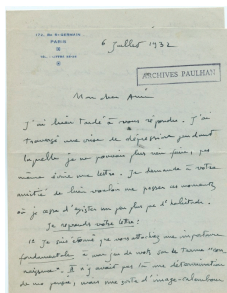 6 Juillet 1932
PARIS
ARCHIVES PAULHAN
Mon cher Ami
J'ai bien tardé à vous répondre. J'ai
traversé une crise de dépression pendant
laquelle je ne pouvais plus rien faire, pas
même écrire une lettre. Je demande à votre
amitié de bien vouloir me passer ces moments
où je cesse d'exister un peu plus que d'habitude.
Je reprends votre lettre:
1° Je suis étonné que vous attachiez une importance
fondamentale à un jeu de mots sur le terme
Il n'y avait pas là une détermination
de ma pensée, mais une sorte d'image-calembour